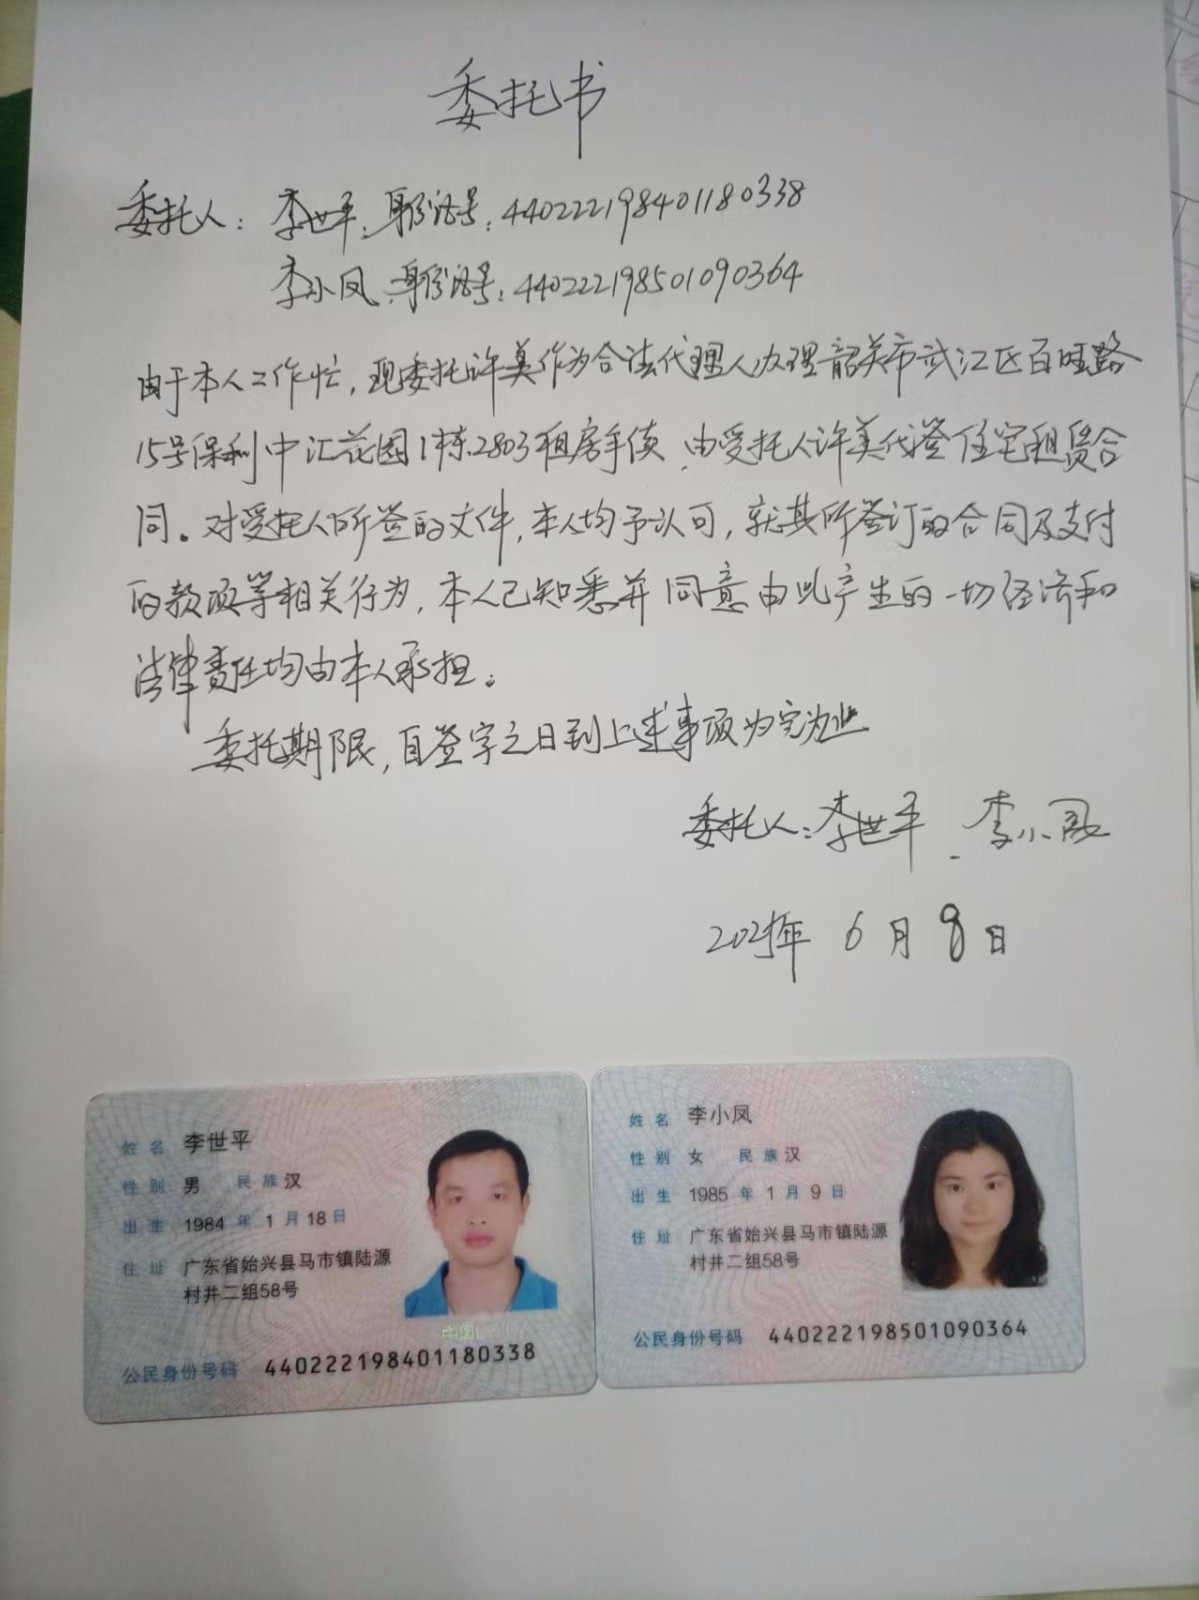 委托书
委托人：李世平，身份证号：440222198401180338
李小凤，身份证号：440222198501090364
由于本人工作忙，现委托许美作为合法代理人办理韶关市武江区百旺路
15号保利中汇花园1栋2803租房手续，由受托人许美代签住宅租赁合
同。对受托人所签的文件，本人均予认可，就其所签订的合同及支付
的款项等相关行为，本人已知悉并同意由此产生的一切经济和
法律责任均由本人承担。
委托期限，自签字之日到上述事项为完为止
委托人：李世平、李小凤
2025年 6月 8日
姓名 李世平
性别 男 民族 汉
出生 1984 年 1 月 18 日
住址 广东省始兴县马市镇陆源
村井二组58号
公民身份号码 440222198401180338
姓名 李小凤
性别 女 民族 汉
出生 1985 年 1 月 9 日
住址 广东省始兴县马市镇陆源
村井二组58号
公民身份号码 440222198501090364